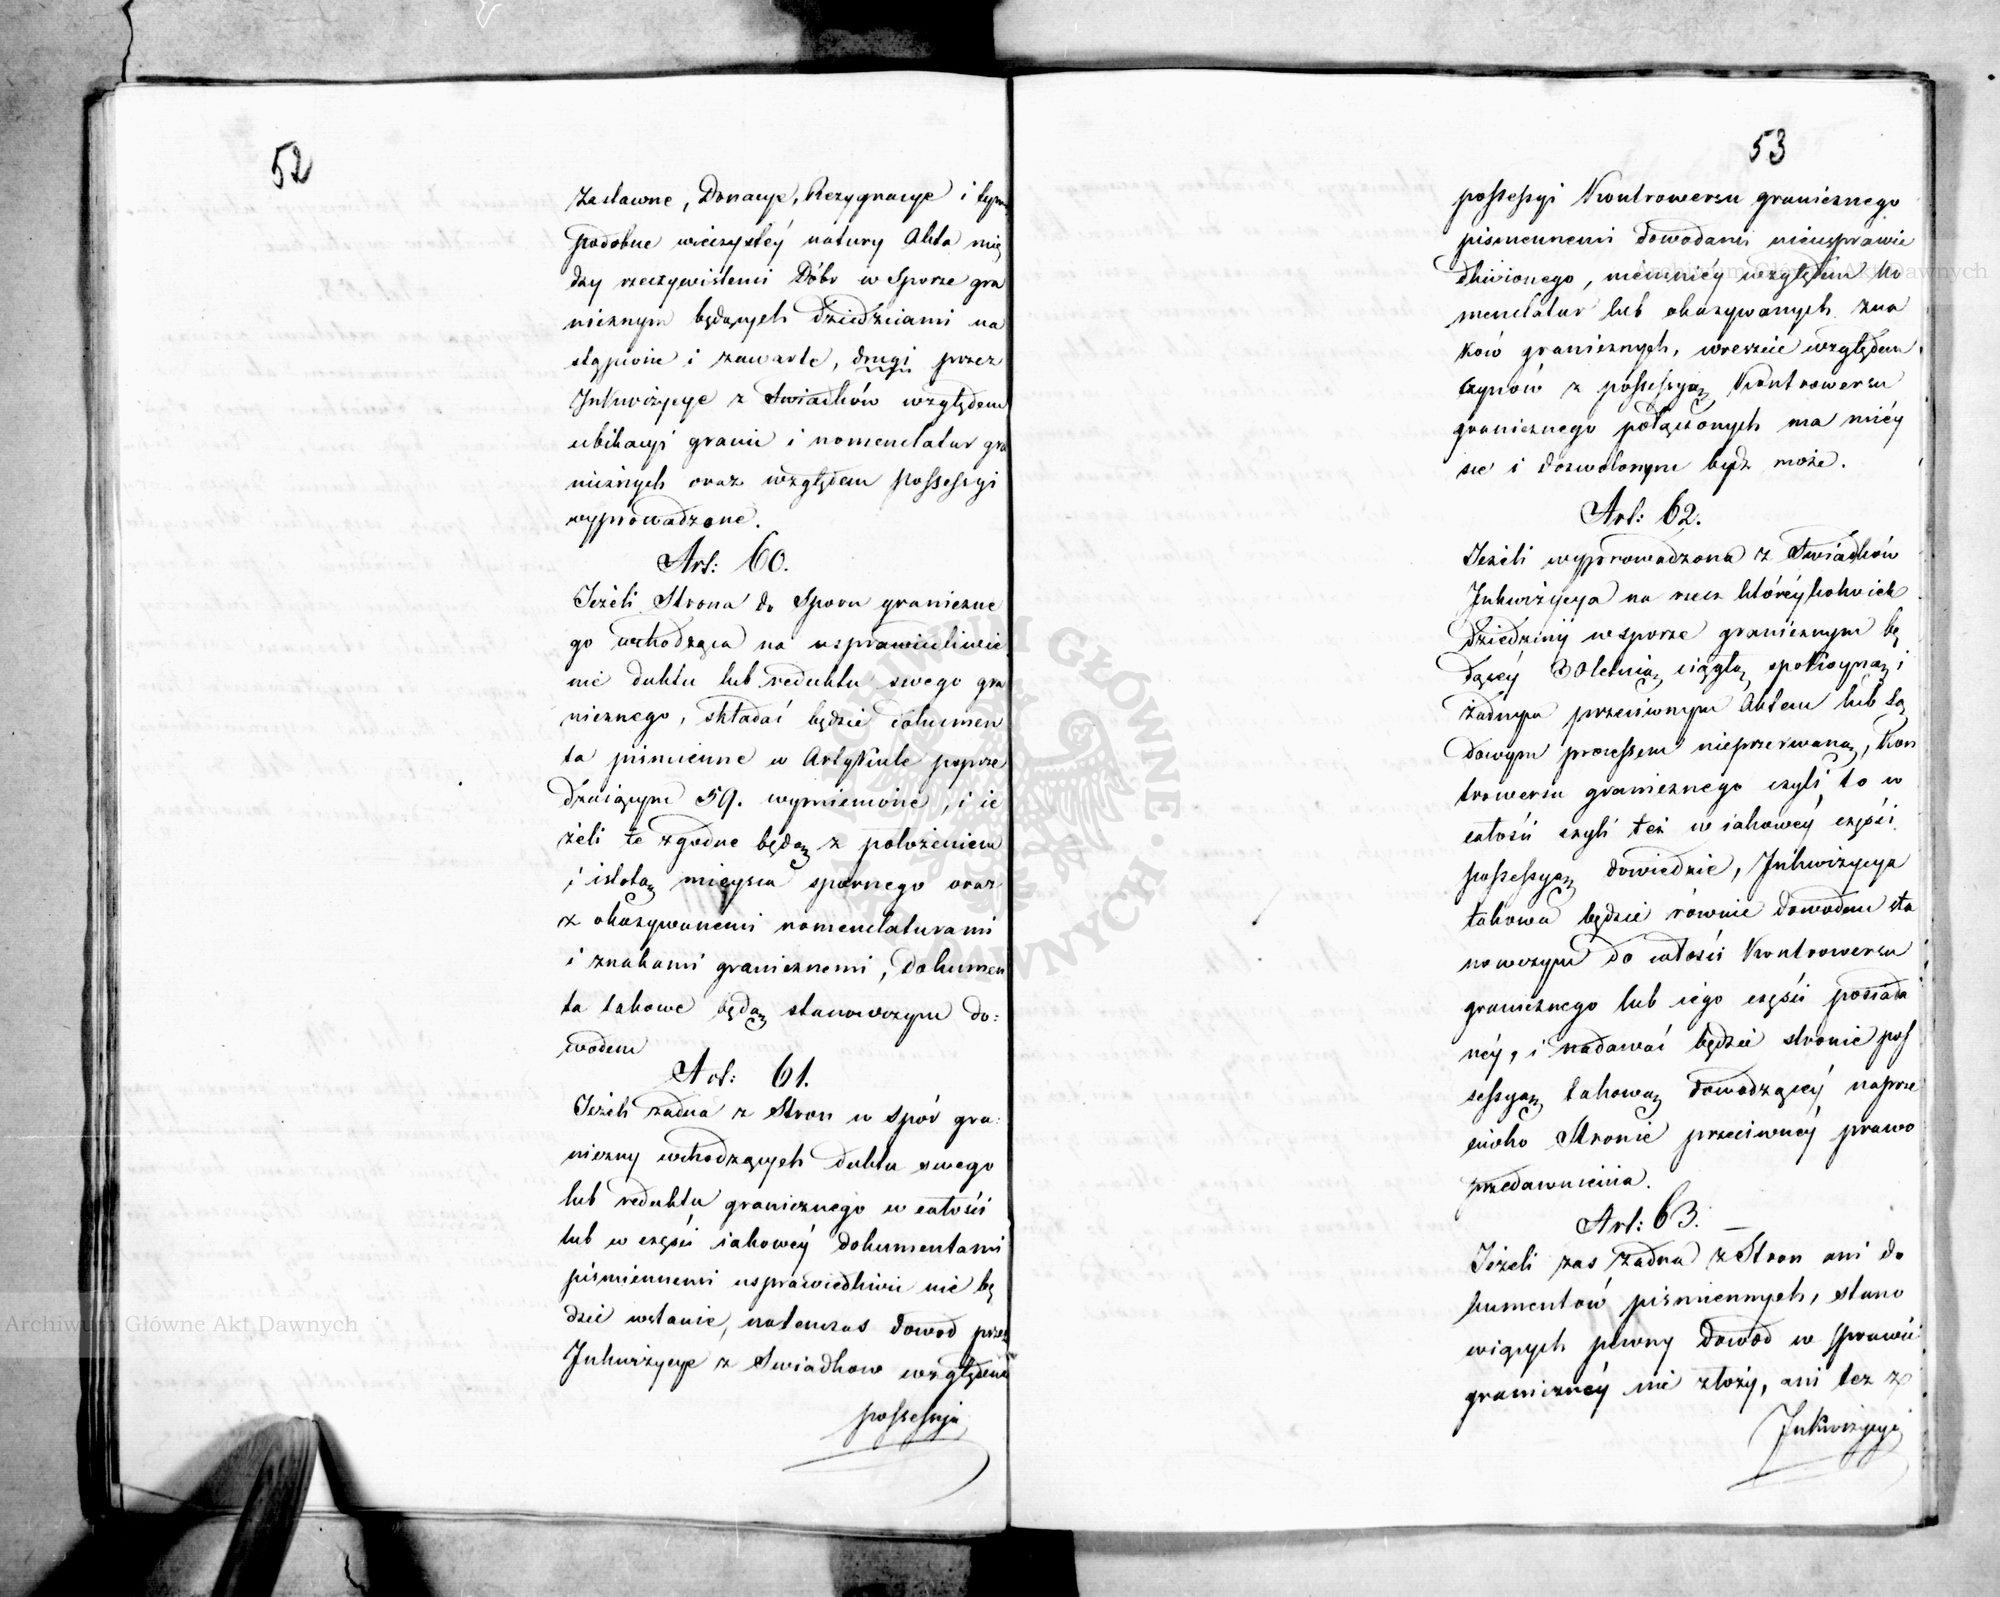 52
Zastawne, Donacye, Rezygnacye i tym
podobne wieczystéy natury Akta mię
dzy rzeczywistemi Dóbr w Sporze gra
nicznym będących dziedzicami na
stąpione i zawarte, drugi przez
Inkwizycye z Swiadków względem
ubikacyi granic i nomenclatur gra
nicznych oraz względem possessyi
wyprowadzone.
Art: 60.
Jeżeli Strona do Sporu graniczne
go wchodząca na usprawiedliwie
nie duktu lub reduktu swego gra
nicznego, składać będzie dokumen
ta piśmienne w Artykule poprze
dzaiącym 59. wymienione, i ie
żeli te zgodne będą z położeniem
i istotą mieysca spornego oraz
z okazywanemi nomenclaturami
i znakami granicznemi, Dokumen
ta takowe będą stanowczym do:
wodem
Art: 61.
Jeżeli żadna z Stron w spór gra:
niczny wchodzących duktu swego
lub reduktu granicznego w całości
lub w części iakowéy dokumentami
piśmiennemi usprawiedliwić nie bę
dzie wstanie, natenczas dowod przez
Inkwizycye z Swiadkow względem
possessyi
53
possessyi Kontrowersu granicznego
pismiennemi dowodami nieusprawie
dliwionego, niemniéy względem No
menclatur lub okazywanych zna
ków granicznych, wreszcie względem
czynów z possessyą Kontrowersu
granicznego połączonych ma miéy
sce i dozwolonym bydz może.
Art: 62.
Jeżeli wyprowadzona z Swiadków
Inkwizycya na rzecz któréykolwiek
dziedziny w sporze granicznym bę
dącéy 30letnią ciągłą spokoyną i
żadnym przeciwnym Aktem lub Są
dowym processem nieprzerwaną, Kon
trowersu granicznego czyli to w
całości czyli też w iakowéy części
possessyą dowiedzie, Inkwizycya
takowa będzie równie dowodem sta
nowczym do całości Kontrowersu
granicznego lub iego części posiada
néy, i nadawać będzie stronie pos
sessyą takową dowodzącéy naprze
ciwko Stronie przeciwnéy prawo
przedawnienia.
Art: 63.
Jeżeli zas żadna z Stron ani do
kumentów piśmiennych, stano
wiących pewny dowod w sprawie
granicznéy nie złoży, ani też z
Inkwizycyi
Archiwum Główne Akt Dawnych
Archiwum Główne Akt Dawnych
ARCHIWUM GŁÓWNE AKT DAWNYCH